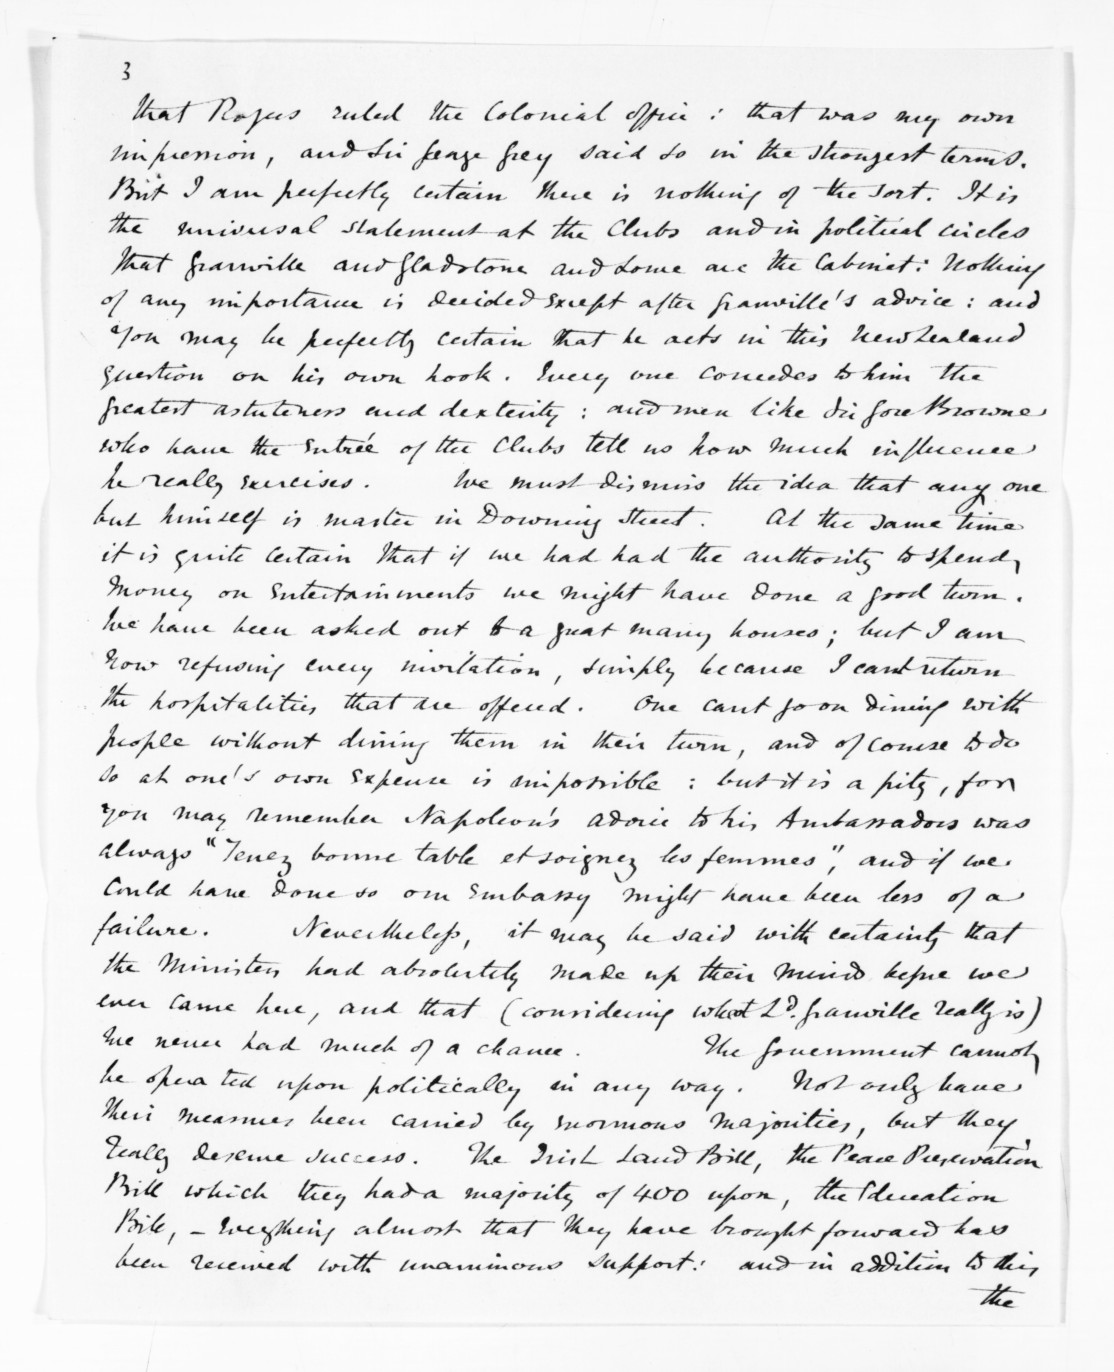 3
that Rogers ruled the Colonial Office: that was my own
impression, and Sir George Grey said so in the strongest terms.
But I am perfectly certain there is nothing of the sort. It is
the universal statement at the Clubs and in political circles
that Granville and Gladstone and Lowe are the Cabinet: nothing
of any importance is decided except after Granville's advice: and
you may be perfectly certain that he acts in this New Zealand
question on his own hook. Every one concedes to him the
greatest astuteness and dexterity: and men like Sir Gore Browne
who have the Entrée of the Clubs tell us how much influence
he really exercises. We must dismiss the idea that any one
but himself is master in Downing Street. At the same time
it is quite certain that if we had had the authority to spend
money on entertainments we might have done a good turn.
We have been asked out to a great many houses; but I am
now refusing every invitation, simply because I cant return
the hospitalities that are offered. One cant go on dining with
people without dining them in their turn, and of course to do
so at one's own expense is impossible: but it is a pity, for
you may remember Napoleon's advice to his Ambassadors was
always "Tenez bonne table et soignez les femmes", and if we
could have done so our Embassy might have been less of a
failure. Nevertheless, it may be said with certainty that
the Ministers had absolutely made up their mind before we
ever came here, and that (considering what Ld. Granville really is)
we never had much of a chance. The Government cannot
be operated upon politically in any way. Not only have
their measures been carried by enormous majorities, but they
really deserve success. The Irish Land Bill, the Peace Preservation
Bill which they had a majority of 400 upon, the Education
Bill, – everything almost that they have brought forward has
been received with unanimous support: and in addition to this
the